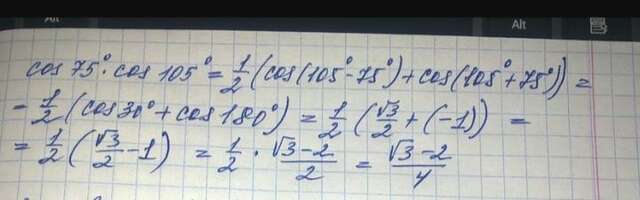 Alt Alt
cos 75° · cos 105° = 1/2 (cos(105° - 75°) + cos(105° + 75°)) =
= 1/2 (cos 30° + cos 180°) = 1/2 (√3/2 + (-1)) =
= 1/2 (√3/2 - 1) = 1/2 · (√3 - 2)/2 = (√3 - 2)/4